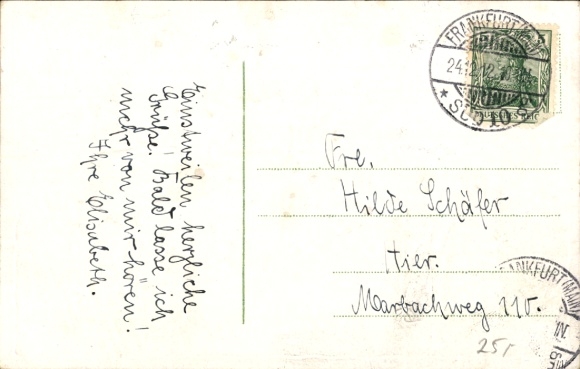 Einstweilen herzliche
Grüße! Bald lasse ich
mehr von mir hören!
Ihre Elisabeth.
FRANKFURT (MAIN)
24.12.12.
DEUTSCHES REICH
Frl.
Hilde Schäfer
Hier.
Marbachweg 110.
FRANKFURT (MAIN)
25,